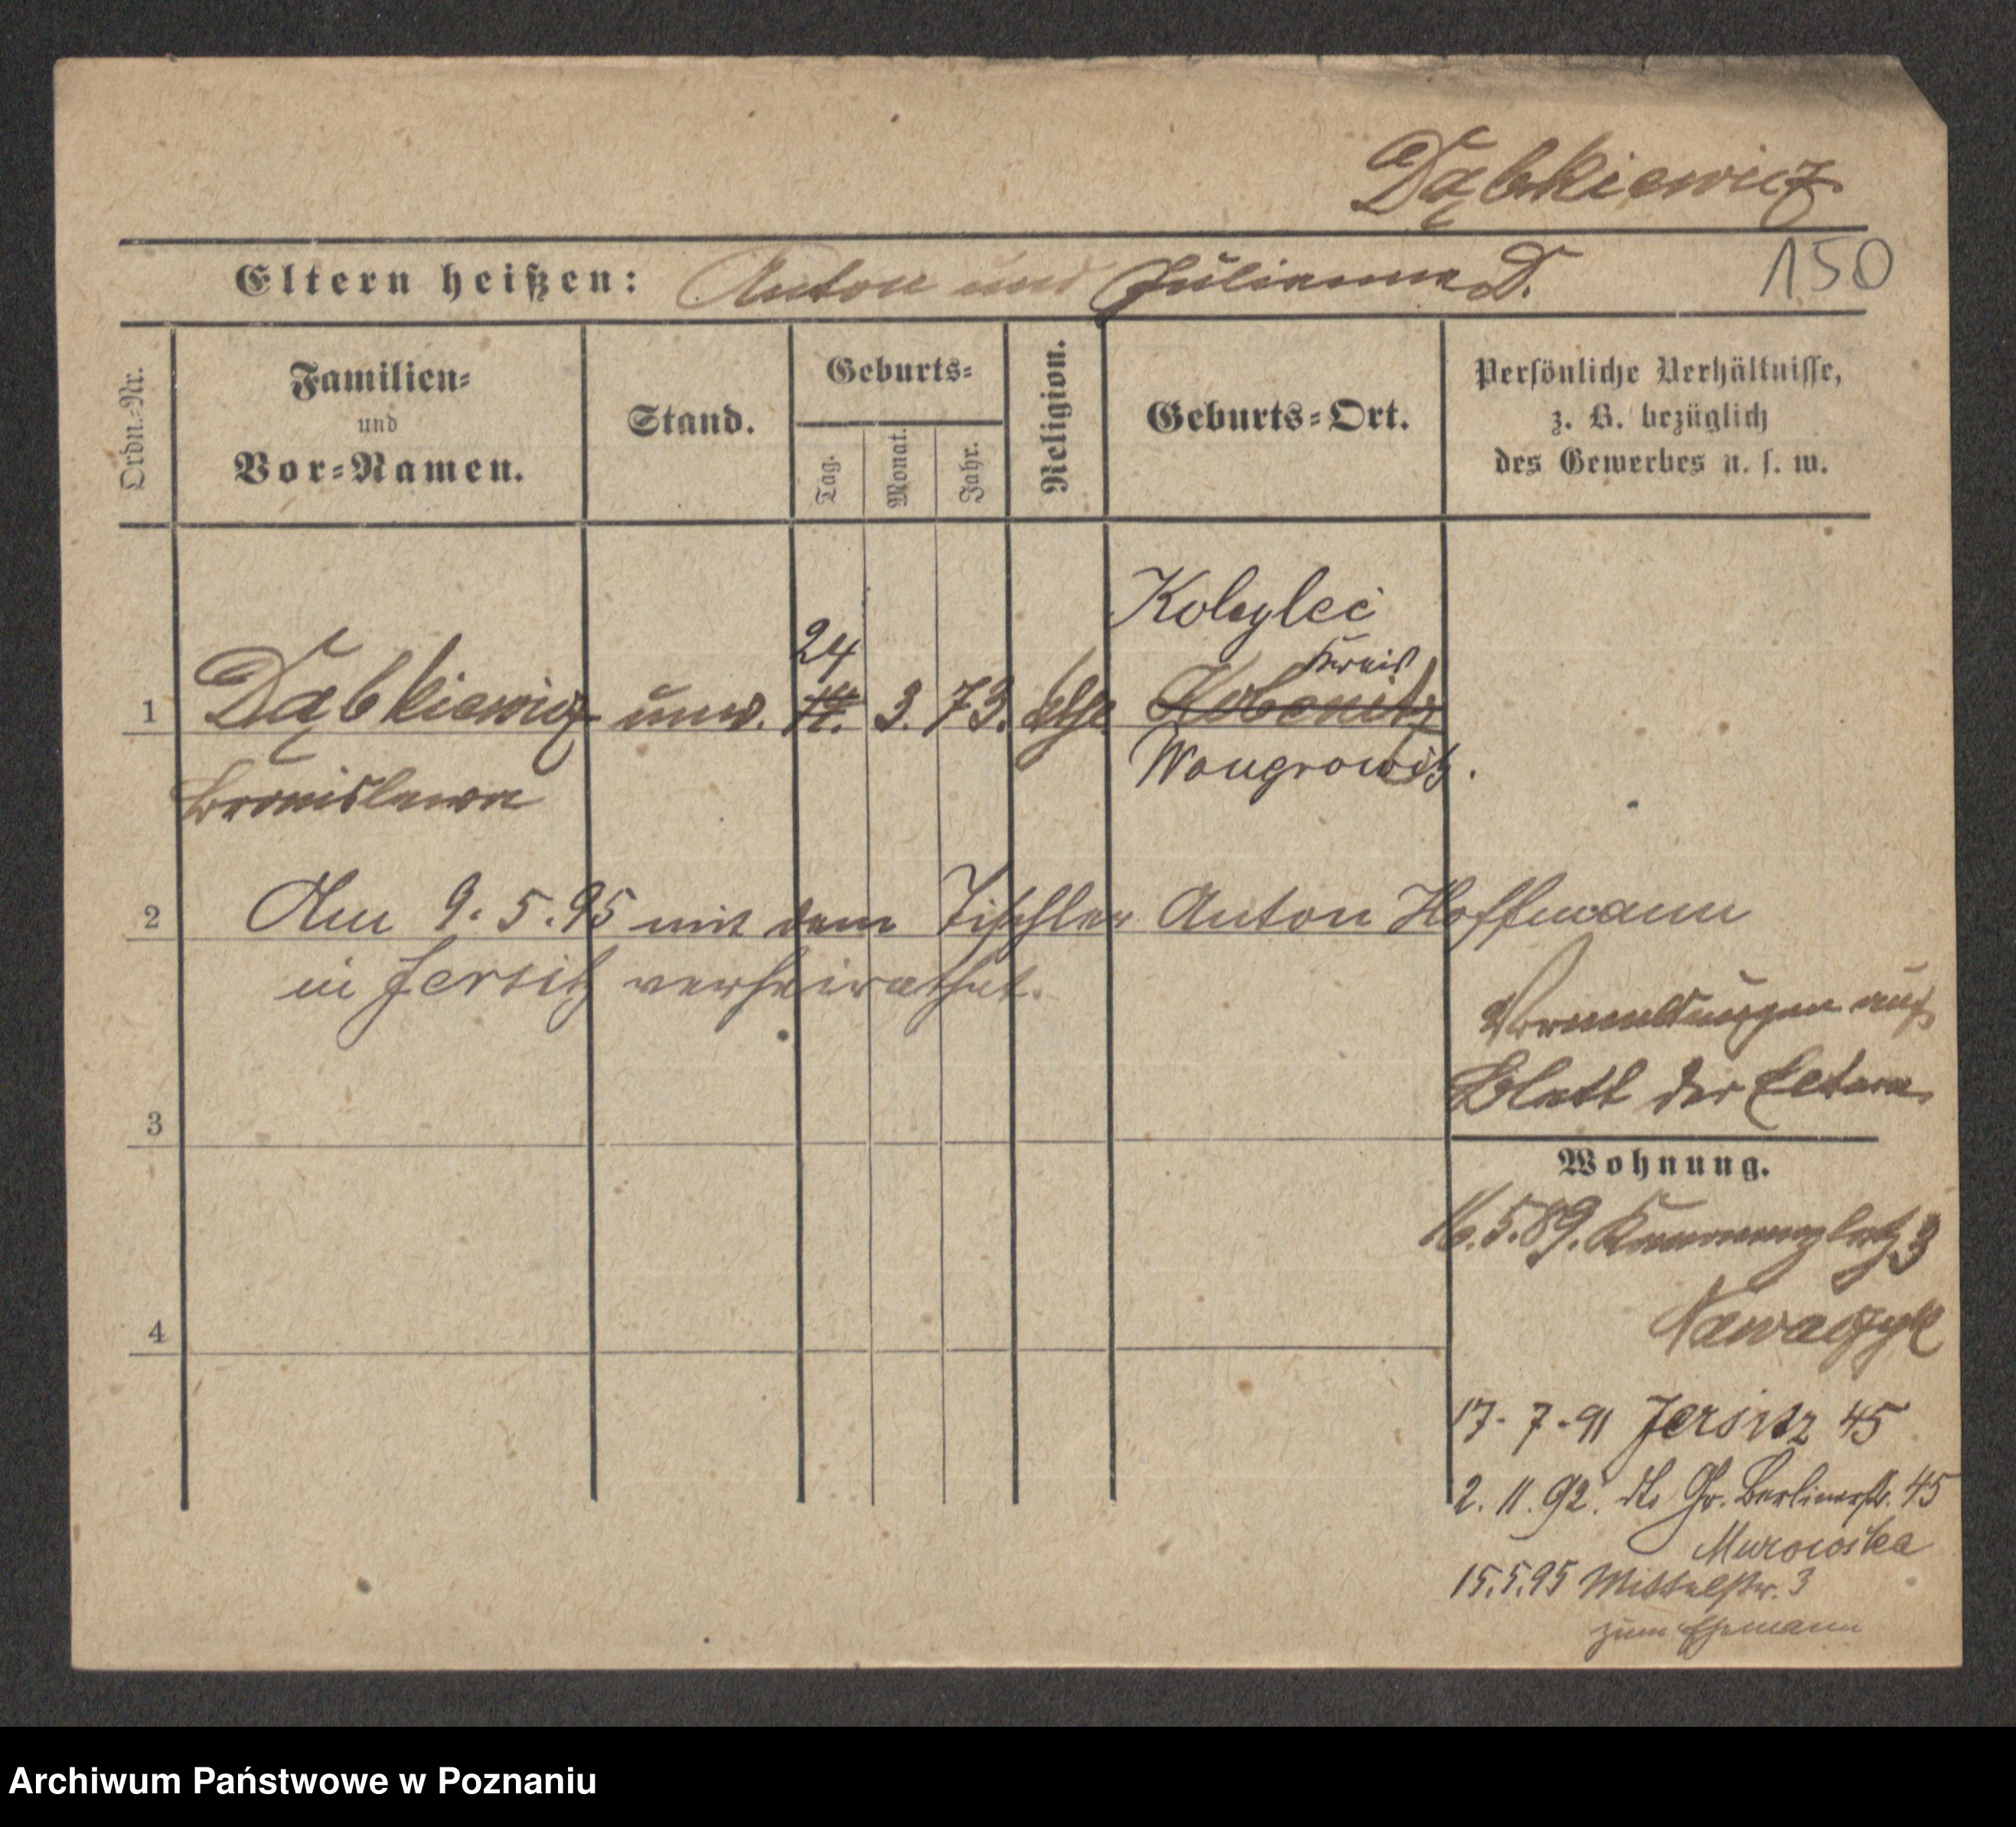 Dąbkiewicz
Eltern heißen: Anton und Julianna D.
150
Ordn.-Nr.
Familien-
und
Vor-Namen.
Stand.
Geburts-
Tag.
Monat.
Jahr.
Religion.
Geburts-Ort.
Persönliche Verhältnisse,
z. B. bezüglich
des Gewerbes u. s. w.
Kobylec
24
Kreis
1 Dąbkiewicz unv. 3. 73. kth. Kobenitz
Wongrowitz.
Bronislawa
2 Am 9. 5. 95 mit dem Tischler Anton Hoffmann
in Jersitz verheirathet.
auf
Blatt der Eltern
3
Wohnung.
16.5.89. 3
Nawaczyk
4
17-7-91 Jersitz 45
2. 11. 92. do Gr. Berlinerstr. 45
Murowska
15.5.95 Mittelstr. 3
zum Ehemann
Archiwum Państwowe w Poznaniu